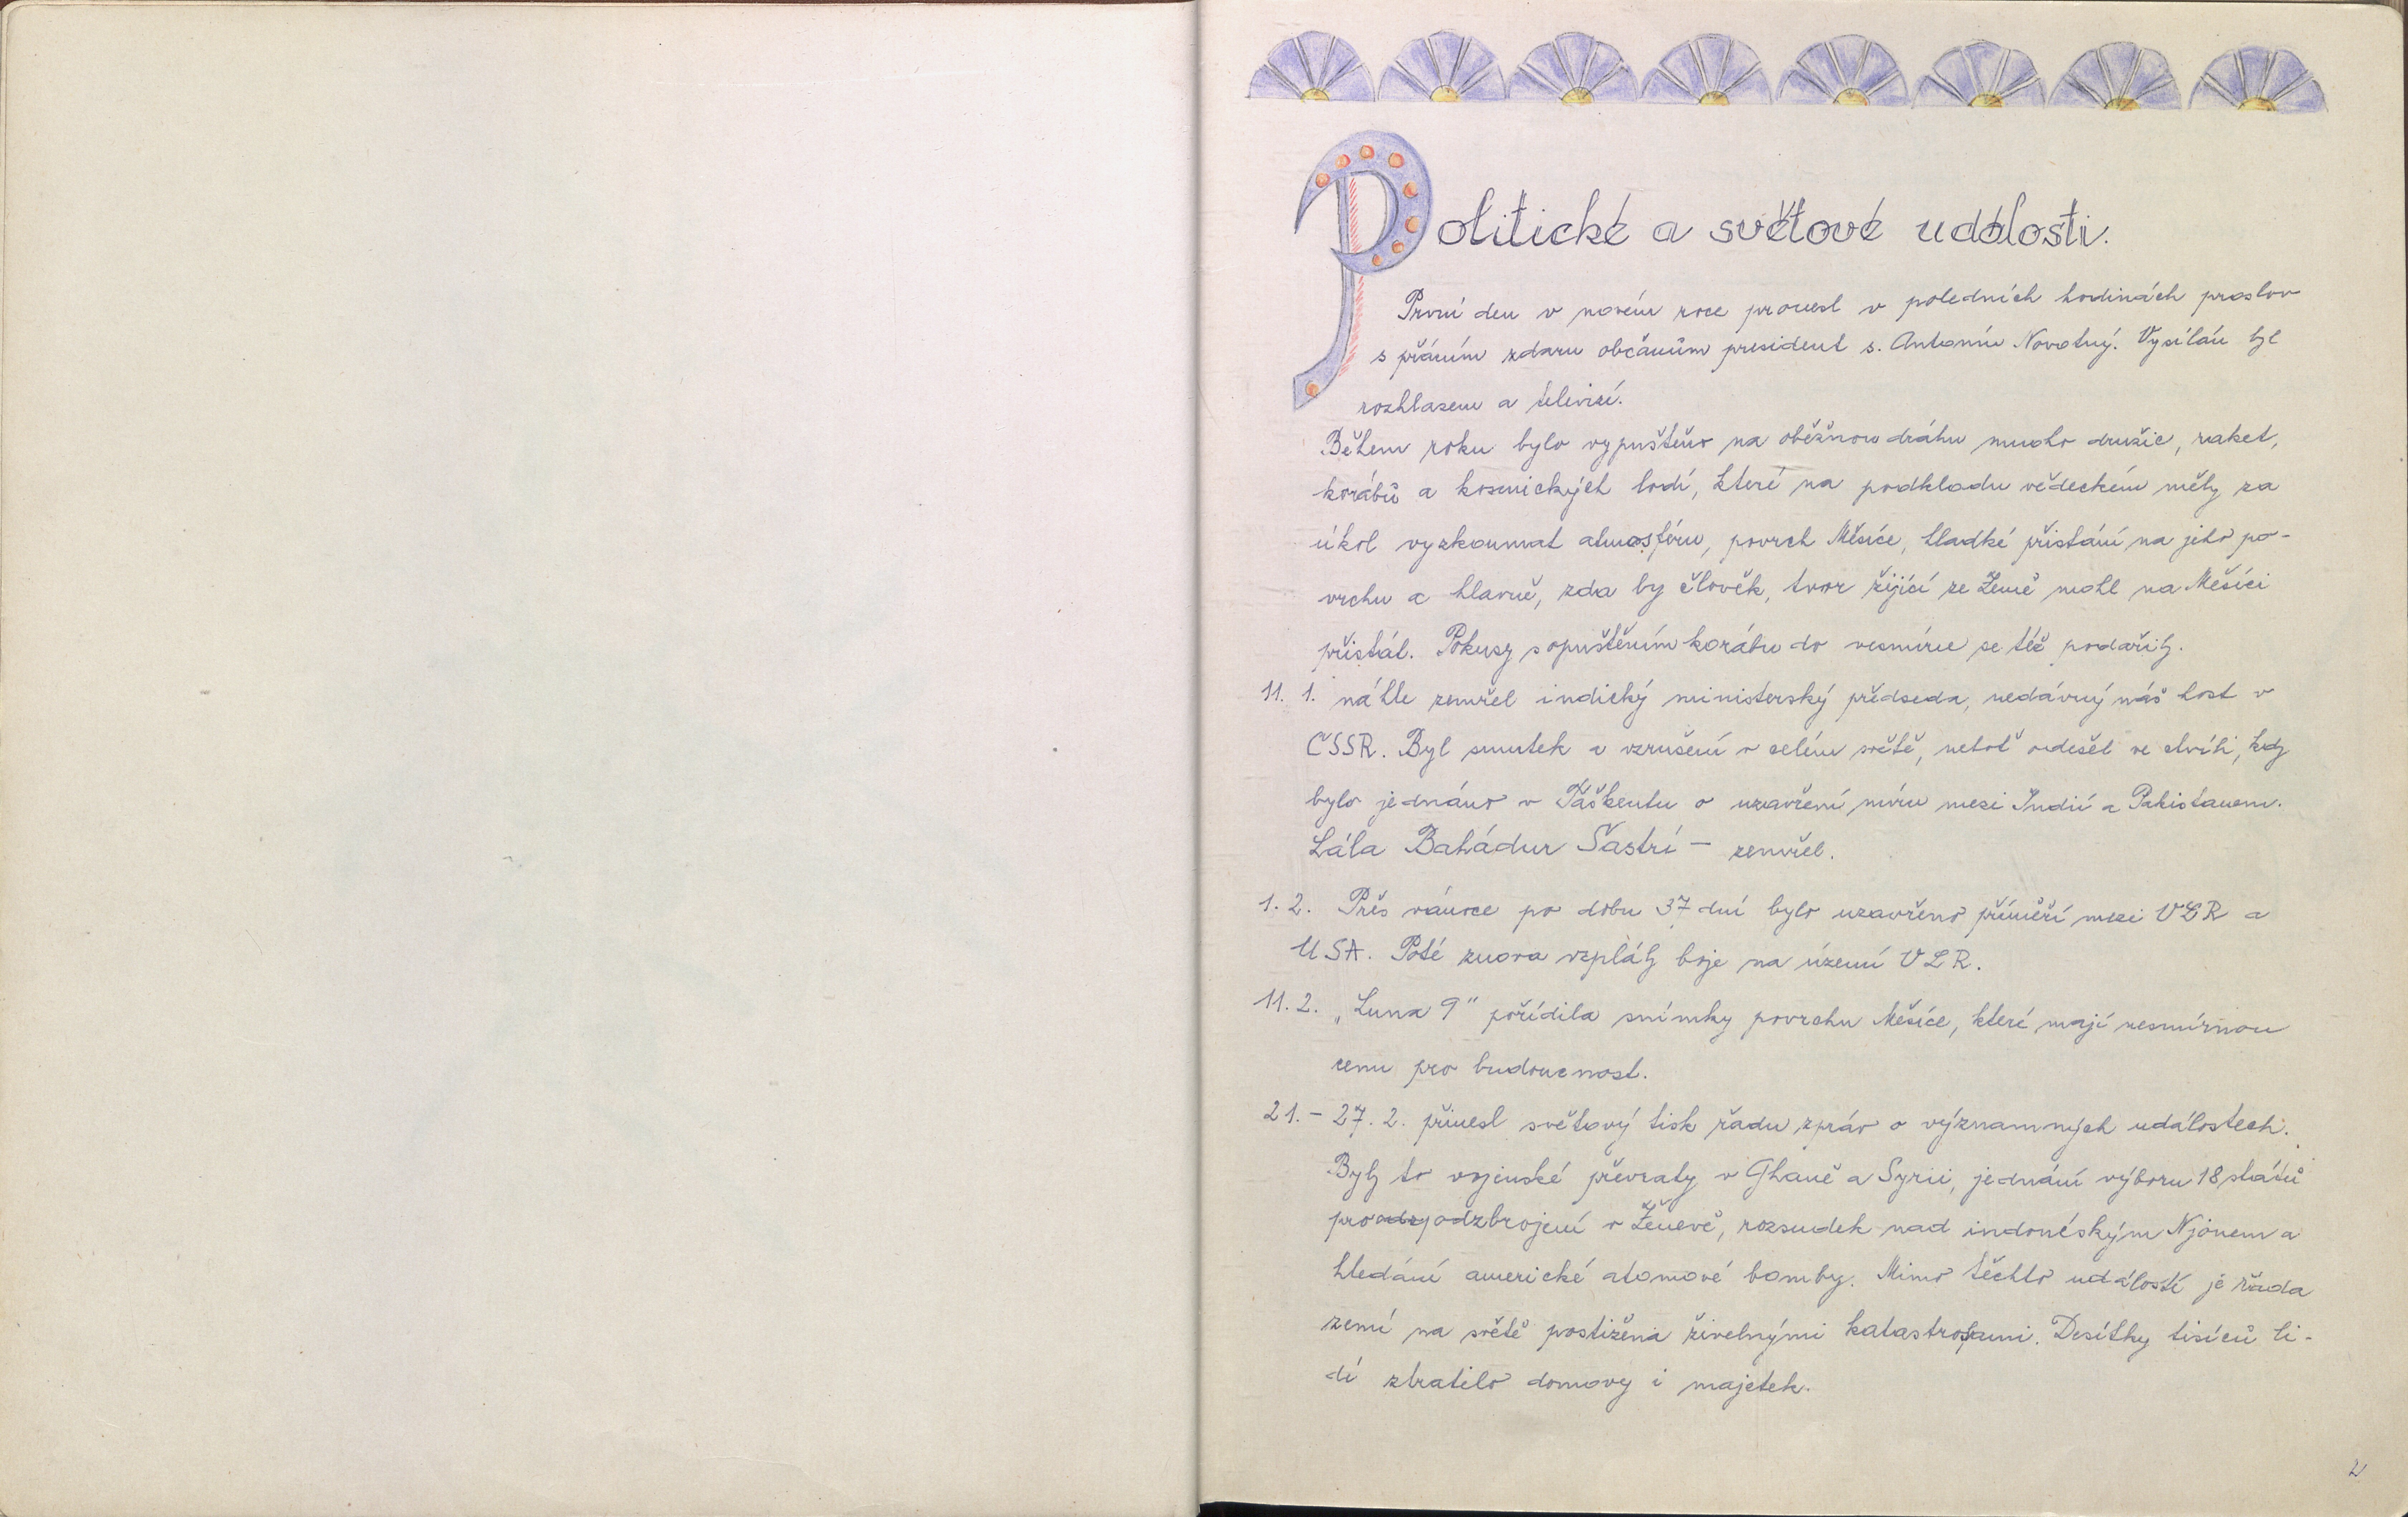 Politické a světové události.
První den v novém roce pronesl v poledních hodinách proslov
s přáním zdaru občanům president s. Antonín Novotný. Vysílán byl
rozhlasem a televisí.
Během roku bylo vypuštěno na oběžnou dráhu mnoho družic, raket,
korábů a kosmických lodí, které na podkladu vědeckém měly za
úkol vyzkoumat atmosféru, povrch Měsíce, hladké přistání na jeho po-
vrchu a hlavně, zda by člověk, tvor žijící ze Země mohl na Měsíci
přistát. Pokusy s opuštěním korábu do vesmíru se též podařily.
11. 1. náhle zemřel indický ministerský předseda, nedávný náš host v
ČSSR. Byl smutek a vzrušení v celém světě, neboť odešel ve chvíli, kdy
bylo jednáno v Taškentu o uzavření míru mezi Indií a Pakistanem.
Lála Bahádur Šastrí - zemřel.
1. 2. Přes vánoce po dobu 37 dní bylo uzavřeno příměří mezi VLR a
USA. Poté znova vzplály boje na území VLR.
11. 2. „Luna 9" pořídila snímky povrchu Měsíce, které mají nesmírnou
cenu pro budoucnost.
21. - 27. 2. přinesl světový tisk řadu zpráv o významných událostech.
Byly to vojenské převraty v Ghaně a Syrii, jednání výboru 18 států
pro odzbrojení v Ženevě, rozsudek nad indonéským Njonem a
hledání americké atomové bomby. Mimo těchto událostí je řada
zemí na světě postižena živelnými katastrofami. Desítky tisíců li-
dí ztratilo domovy i majetek.
2